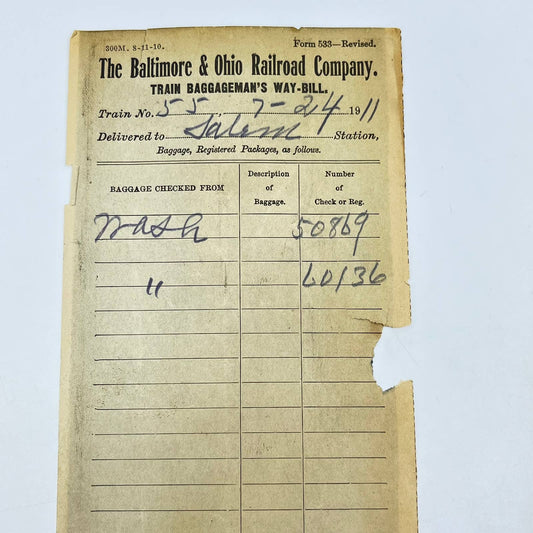 300M. 8-11-10. Form 533—Revised.
The Baltimore & Ohio Railroad Company.
TRAIN BAGGAGEMAN'S WAY-BILL.
Train No. 55, 7-24 1911
Delivered to Salem Station,
Baggage, Registered Packages, as follows.
BAGGAGE CHECKED FROM Description of Baggage. Number of Check or Reg.
Wash 50869
" 60136